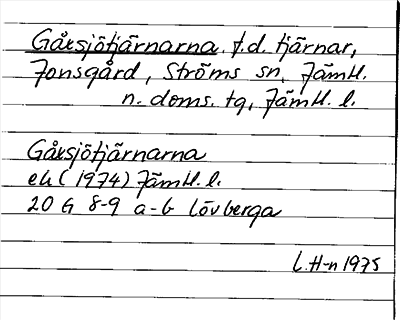 Gåksjötjärnarna f.d. tjärnar,
Jonsgård, Ströms sn, Jämtl.
n. doms. tg, Jämtl. l.
Gåksjötjärnarna
ek (1974) Jämtl. l.
20 G 8-9 a-b Lövberga
L.H-n 1975